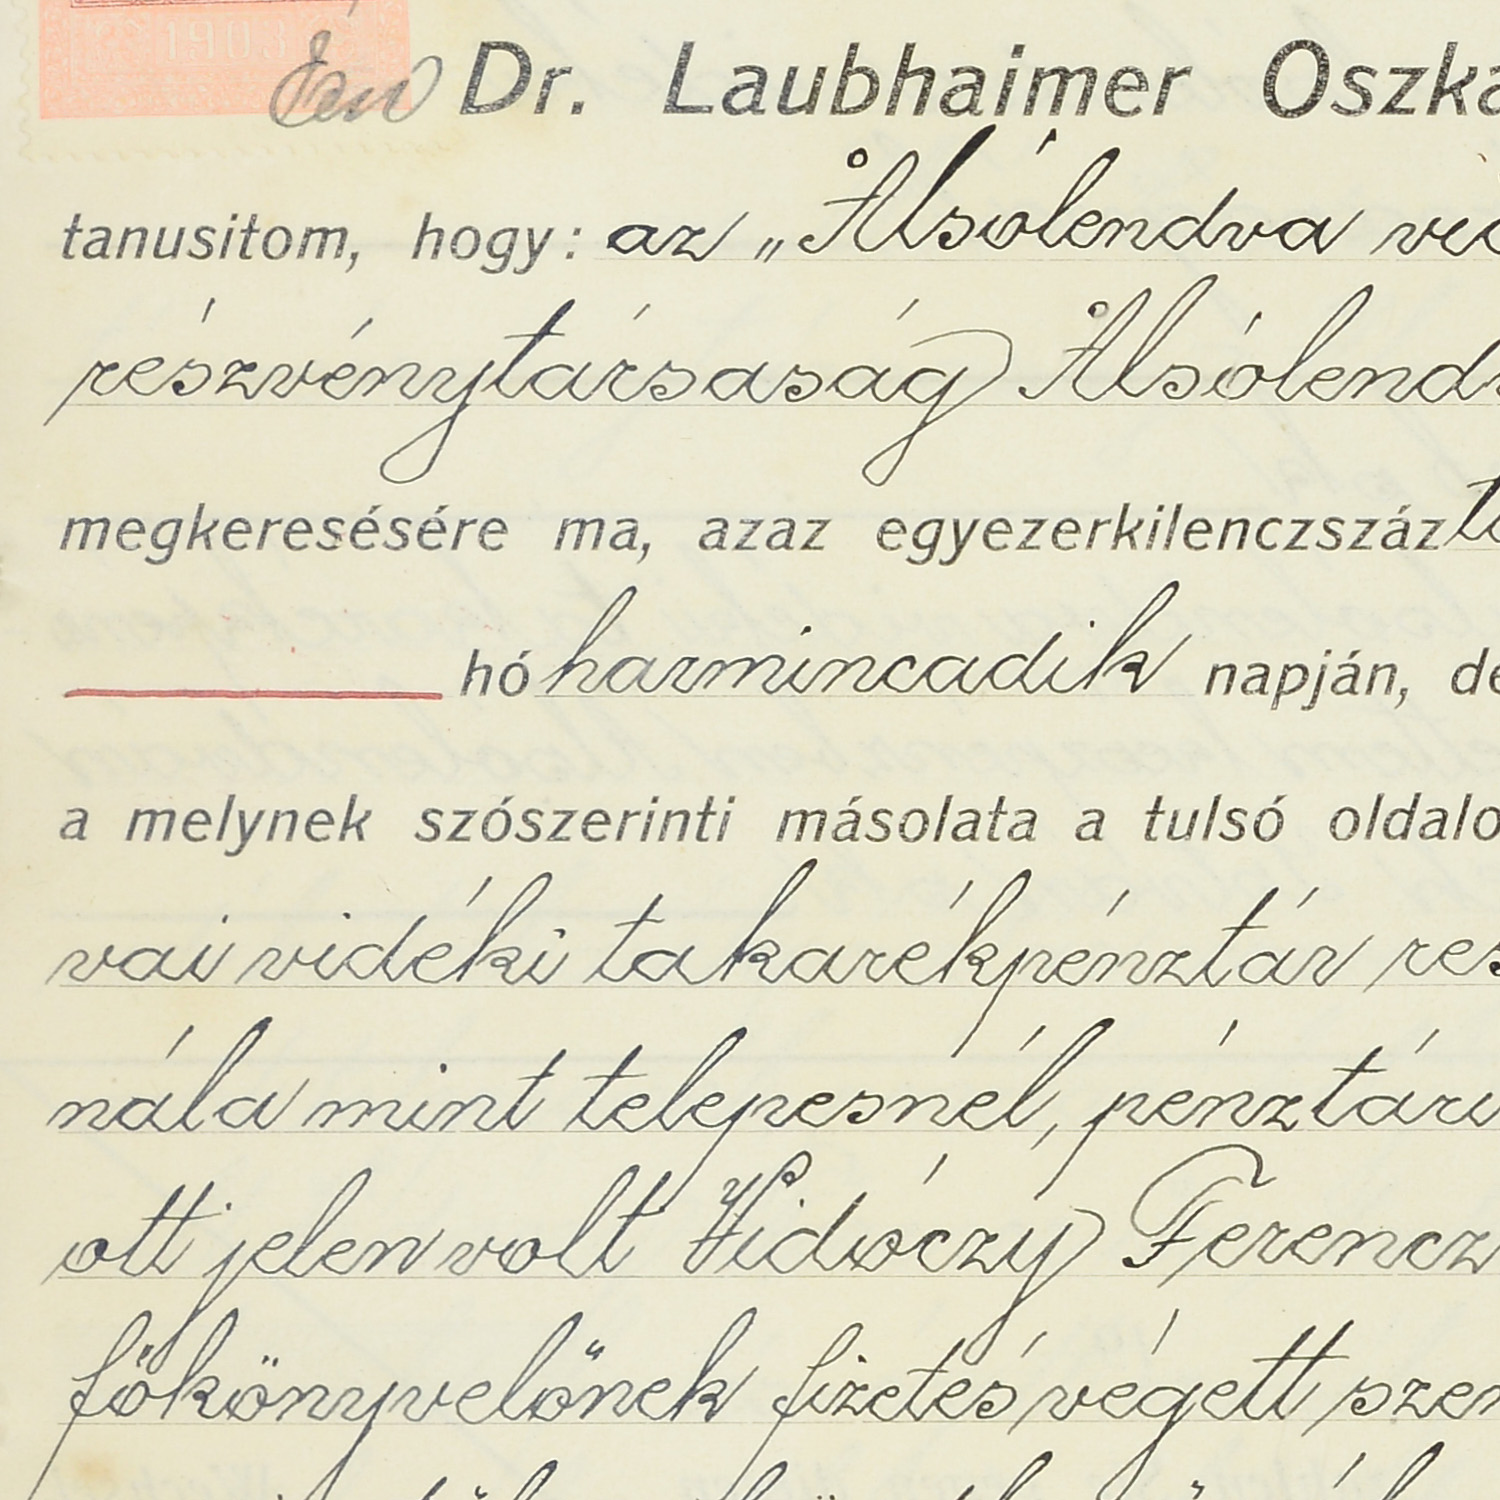 1903
Én Dr. Laubhaimer Oszká
tanusitom, hogy: az „Alsólendva vid
részvénytársaság Alsólendv
megkeresésére ma, azaz egyezerkilenczszázt
hó harmincadik napján, dé
a melynek szószerinti másolata a tulsó oldalo
vai vidéki takarékpénztár rés
nála mint telepesnél, pénztári
ott jelen volt Vidóczy Ferencz
főkönyvelőnek fizetés végett szem